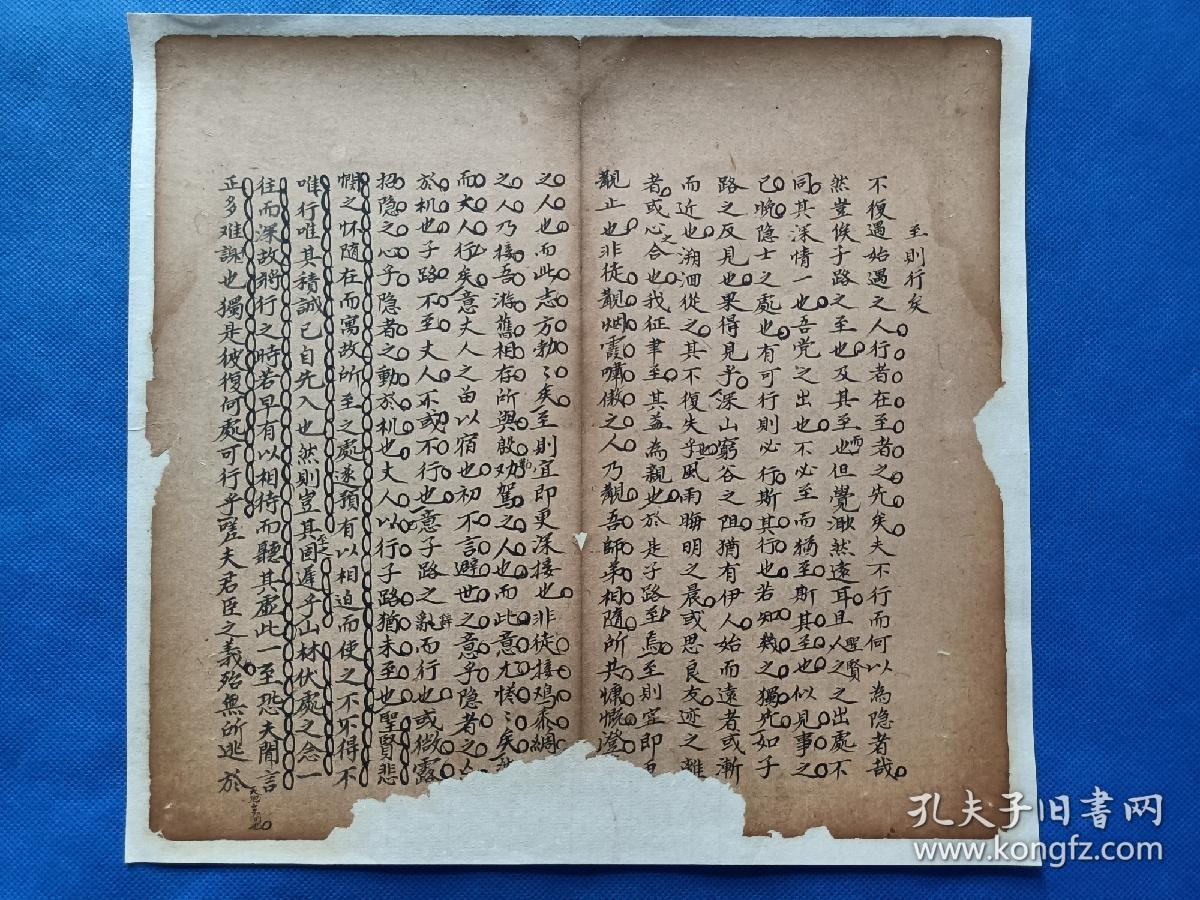 至則行矣
不復遇始遇之人行者在至者之先矣夫不行而何以為隐者哉
然豈俟子路之至也及其至也但覺渺然遠耳且聖賢人之出處不
同其深情一也吾党之出也不必至而猶至斯其至也似見事之
已晚隐士之處也有可行則必行斯其行也若知幾之獨先如子
路之反見也果得見乎深山窮谷之阻猶有伊人始而遠者或漸
而近也溯洄從之其不復失乎風雨晦明之晨或思良友迹之離
者或心之合也我征聿至其盖為親也於是子路至焉至則宜即
觀止也非徒觀烟霞嘯傲之人乃觀吾師弟相隨所共慷慨澄
之人也而此志方勃〻矣至則宜即更深接也非徒接鸡黍綢
之人乃接吾游舊相存所與殷勤劝駕之人也而此意尤惓〻矣
而丈人行矣意丈人之留以宿也初不言避世之意乎隐者之
於机也子路不至丈人不或不行也意子路之辭而行也或微露
招隐之心乎隐者之動於机也丈人以行子路猶未至也聖賢悲
憫之怀随在而寓故所至之處遂預有以相迫而使之不得不
唯行唯其積誠已自先入也然則豈其固遲乎山林伏處之念一
往而深故將行之時若早有以相待而聽其虛此一至恐夫聞言
正多难誤也獨是彼復何處可行乎嗟夫君臣之義殆無所逃於
孔夫子旧書网
www.kongfz.com